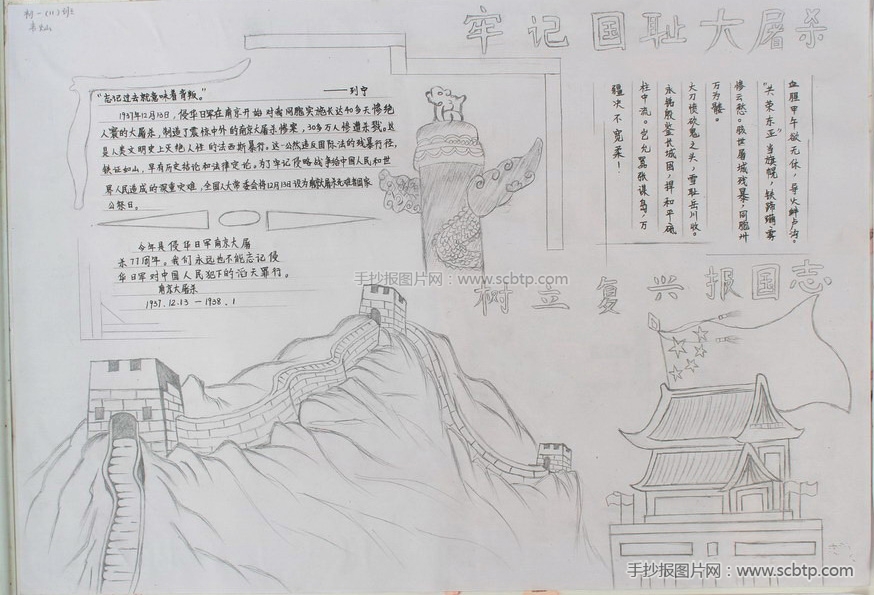 初一(11)班
牢记国耻大屠杀
"忘记过去就意味着背叛。"——列宁
1937年12月13日,侵华日军在南京开始对我同胞实施长达40多天惨绝
人寰的大屠杀,制造了震惊中外的南京大屠杀惨案,30多万人惨遭杀戮。这
是人类文明史上灭绝人性的法西斯暴行。这一公然违反国际法的残暴行径,
铁证如山,早有历史结论和法律定论。为了牢记侵略战争给中国人民和世
界人民造成的深重灾难,全国人大常委会将12月13日设为南京大屠杀死难者国家
公祭日。
今年是侵华日军南京大屠
杀77周年。我们永远也不能忘记侵
华日军对中国人民犯下的滔天罪行。
南京大屠杀
1937.12.13—1938.1
血腥甲午欲无休,导火卢沟。
"共荣东亚"当旗幌,铁蹄
惨云愁。骇世屠城残暴,同胞卅
万为髅。
大刀愤砍鬼之头,雪耻岳川收。
永铭殷鉴长城固,捍和平
柱中流。岂允嚣张谋岛,万
疆决不宽柔!
树立复兴报国志
手抄报图片网:www.scbtp.com
手抄报图片网:www.scbtp.com